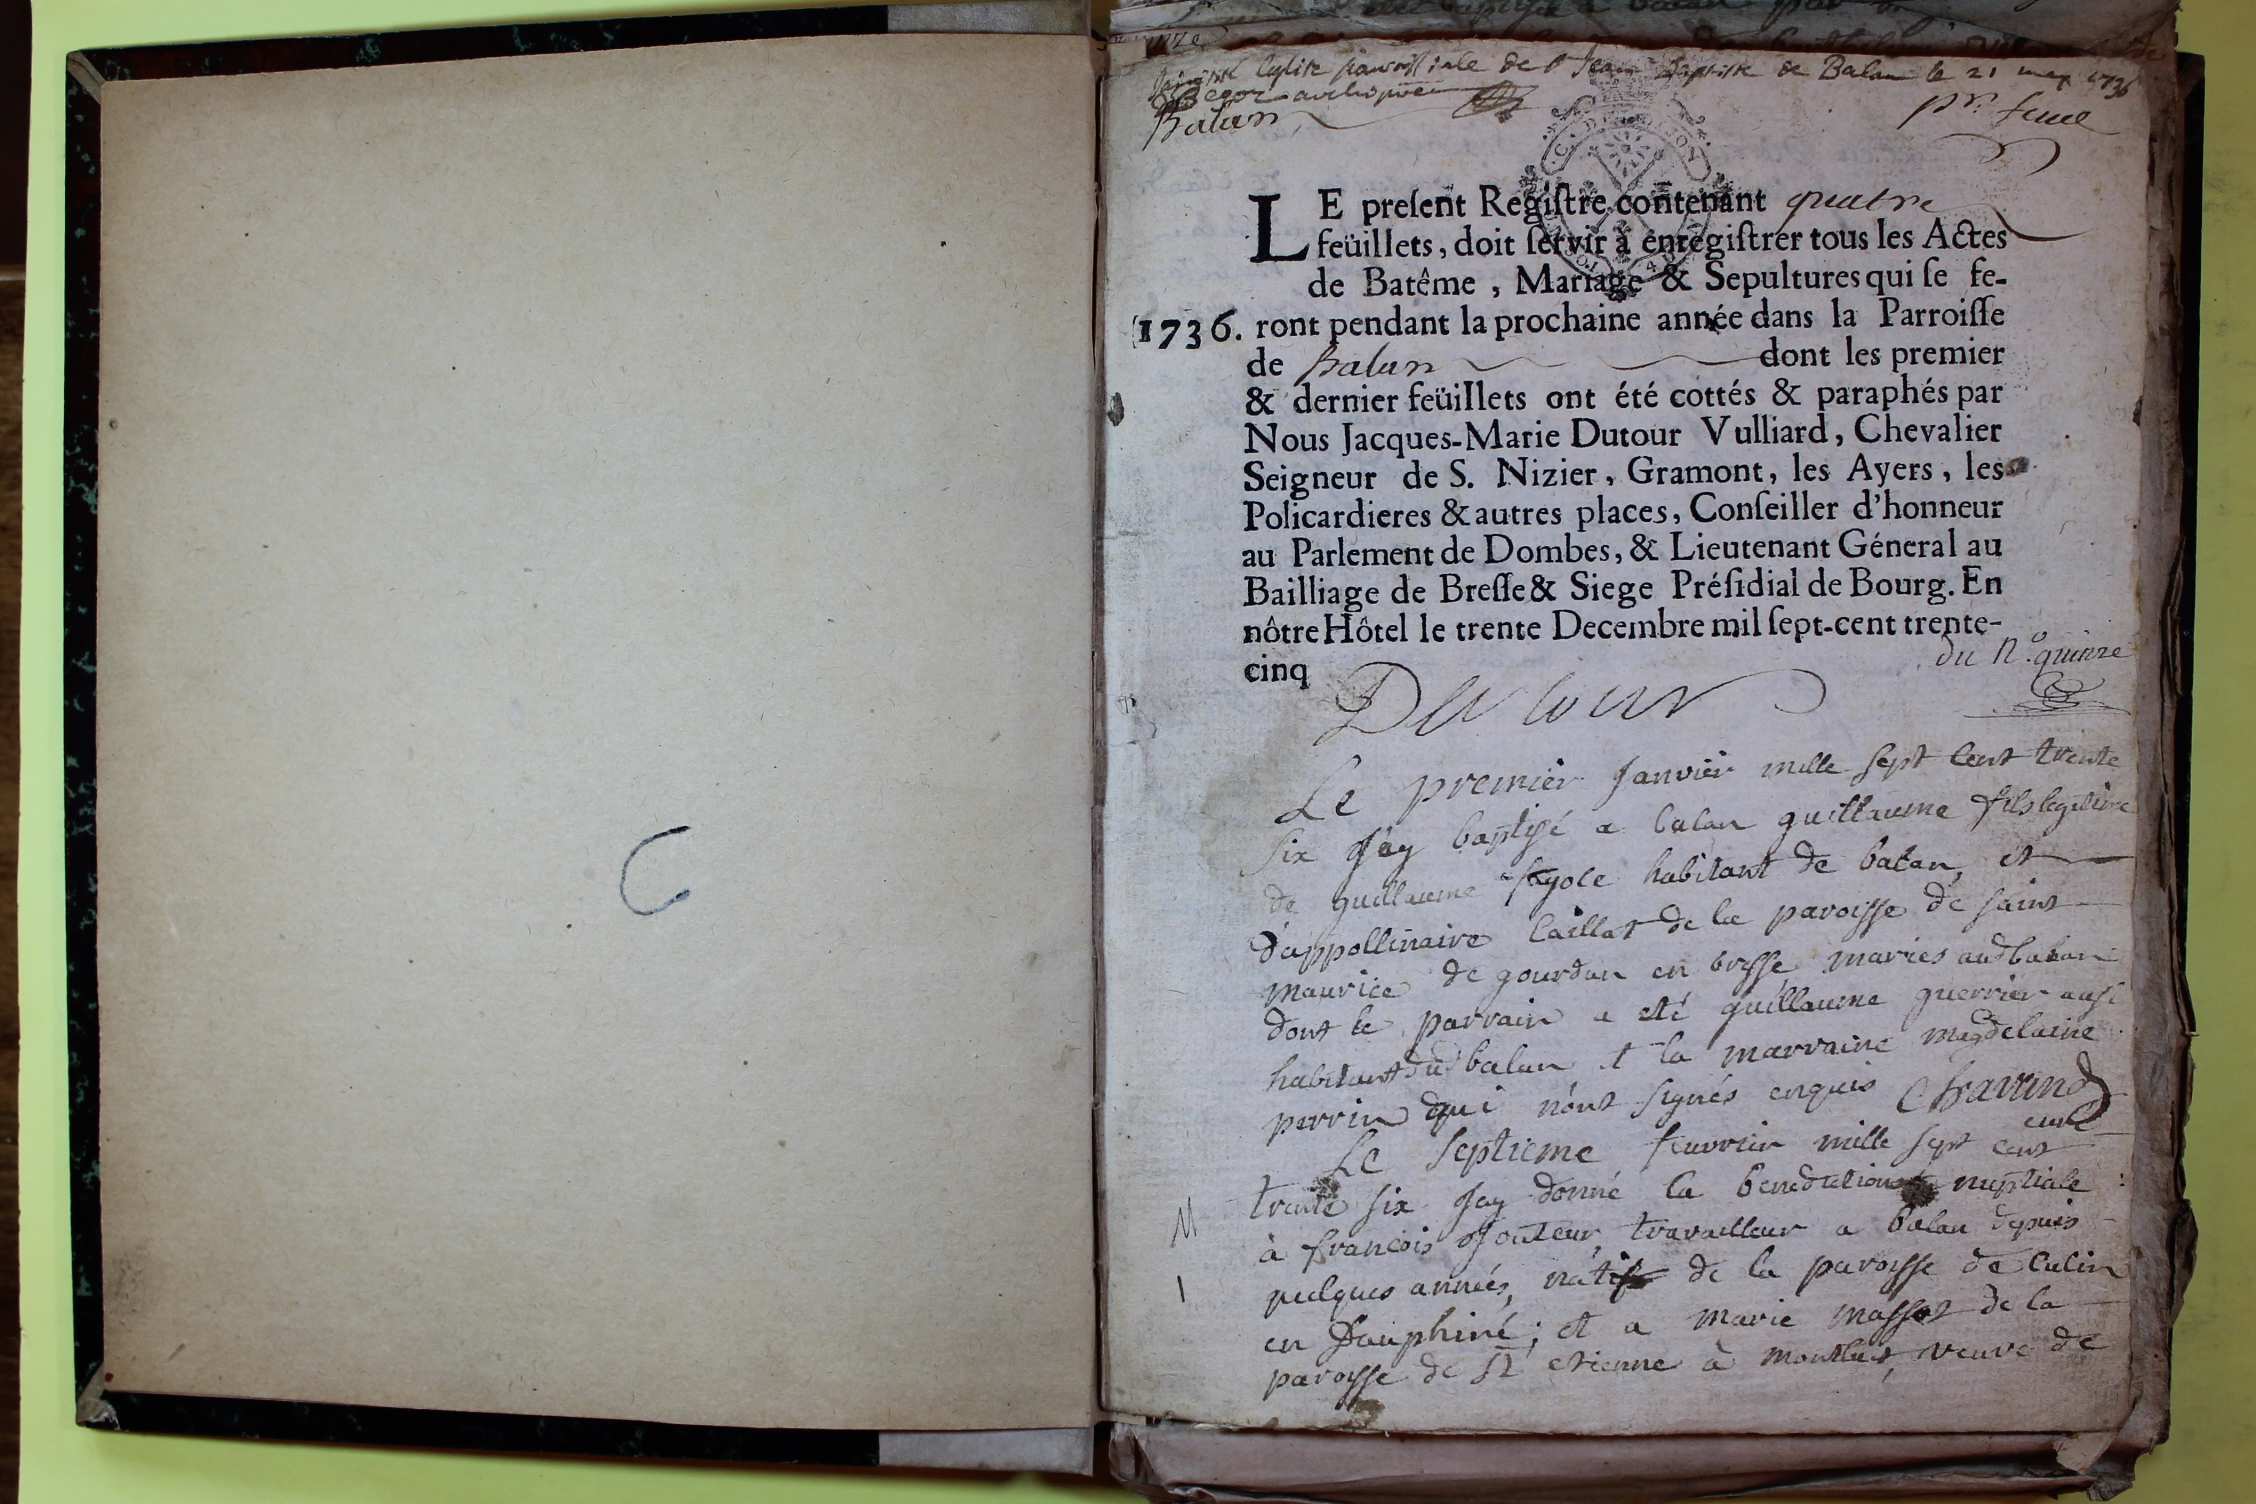 l'eglise parroissiale de St Jean Baptiste de Balan le 21 may 1736
Balan
pr. feuil
LE preſent Regiſtre contenant quatre
feüillets, doit ſervir à enregiſtrer tous les Actes
de Batême, Mariage & Sepultures qui ſe fe-
1736. ront pendant la prochaine année dans la Parroiſſe
de Balan dont les premier
& dernier feüillets ont été cottés & paraphés par
Nous Jacques-Marie Dutour Vulliard, Chevalier
Seigneur de S. Nizier, Gramont, les Ayers, les
Policardieres & autres places, Conſeiller d'honneur
au Parlement de Dombes, & Lieutenant Géneral au
Bailliage de Breſſe & Siege Préſidial de Bourg. En
nôtre Hôtel le trente Decembre mil ſept-cent trente-
cinq
du N.o quinze
Dutour
Le premier Janvier mille sept cent trente
six J'ay baptisé a balan guillaume fils legitime
de guillaume fayole habitant de balan, et
d'appollinaire Caillat de la paroisse de saint
maurice de gourdan en bresse mariés audt balan
dont le parrain a eté guillaume guerrier aussi
habitant dudt balan et la marraine magdelaine
perrin qui n'ont signés enquis Chavrind
curé
Le septieme feuvrier mille sept cent
trente six J'ay donné la benediction nuptiale
à francois Jouteur travailleur a balan depuis
quelques années, natif de la paroisse de Culin
en Dauphiné; et a marie massot de la
paroisse de St etienne à montluel, veuve de
M
1
C